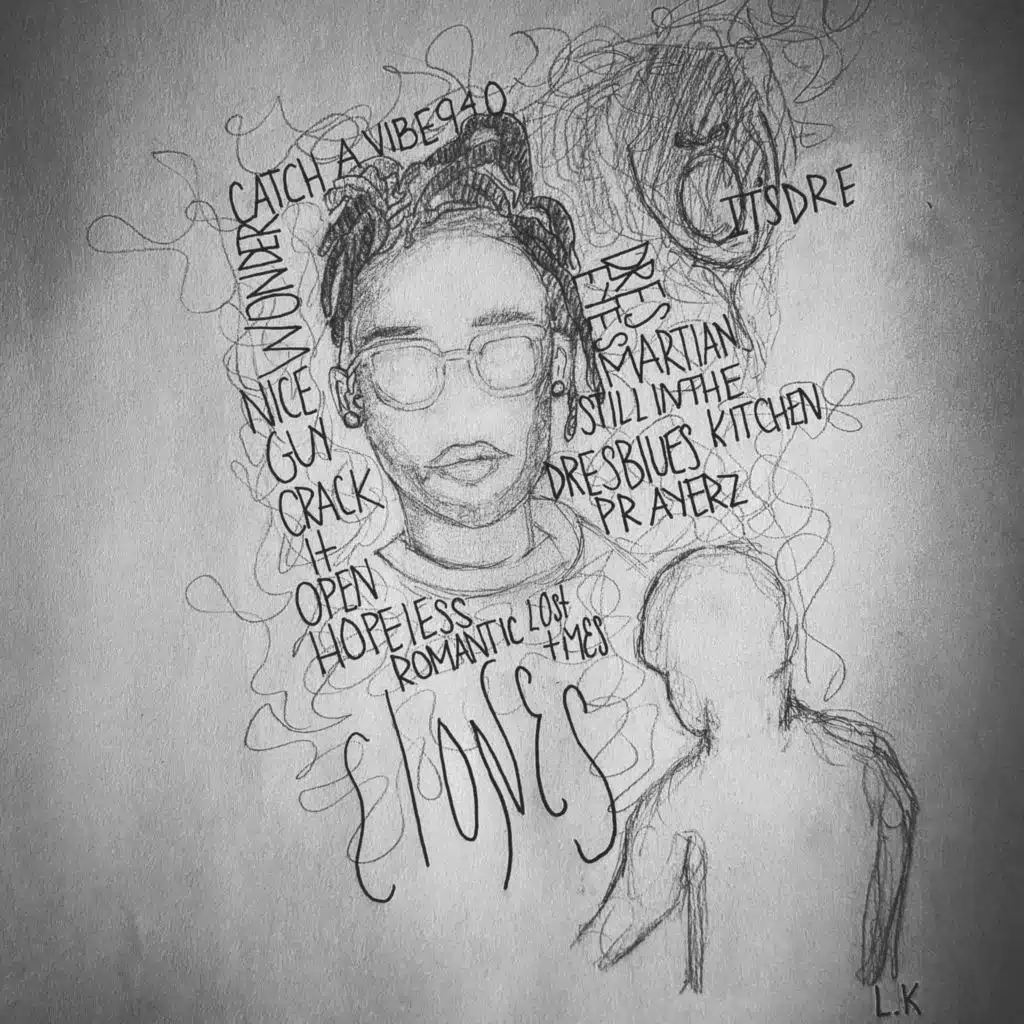 CATCH A VIBE940
IT'SDRE
WONDER
NICE
GUY
CRACK
It
OPEN
HOPELESS
ROMANTIC
LOSt
tIMES
DRES
EYES
MARTIAN
STILL IN THE
KITCHEN
DRESBLUES
PRAYERZ
CLONES
L.K